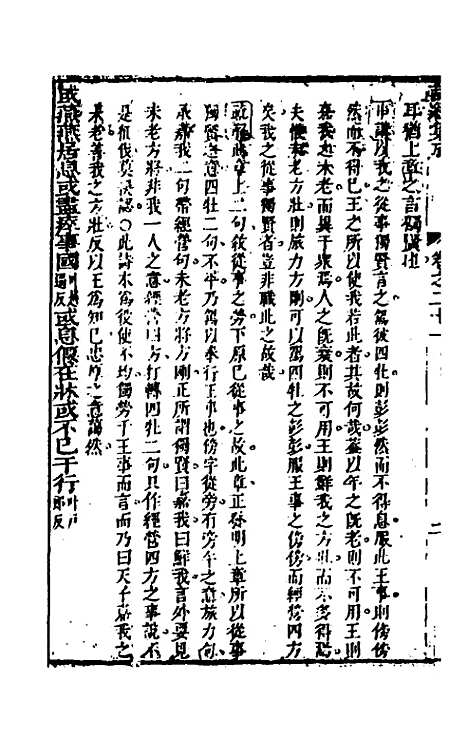 耳猶上章之言獨賢也
申講以我之從事獨賢言之駕彼四牡則彭彭然而不得息服此王事則傍傍
然而不得已王之所以使我若此者其故何哉蓋以年之旣老則不可用王則
嘉我之未老而異于衆焉人之旣衰則不可用王則鮮我之方壯而不多得焉
夫惟未老方壯則旅力方剛可以駕四牡之彭彭服王事之傍傍而經營四方
矣我之從事獨賢者豈非職此之故哉
此章上二句敘從事之勞下原已從事之故此章正發明上章所以從事
獨賢之意四牡二句不平乃駕以奉行王事也傍字從旁有旁午之意旅力句
承嘉我二句帶經營句未老方將方剛正所謂獨賢曰嘉我曰鮮我言外要見
未老方將非我一人之意經營四方打轉四牡二句只作經營四方之事說不
是征伐莫誤認○此詩本爲役使不均獨勞于王事而言而乃曰天子嘉我之
未老善我之方壯反以王爲知已忠厚之意藹然
或燕燕居息或盡瘁事國或息偃在牀或不已于行